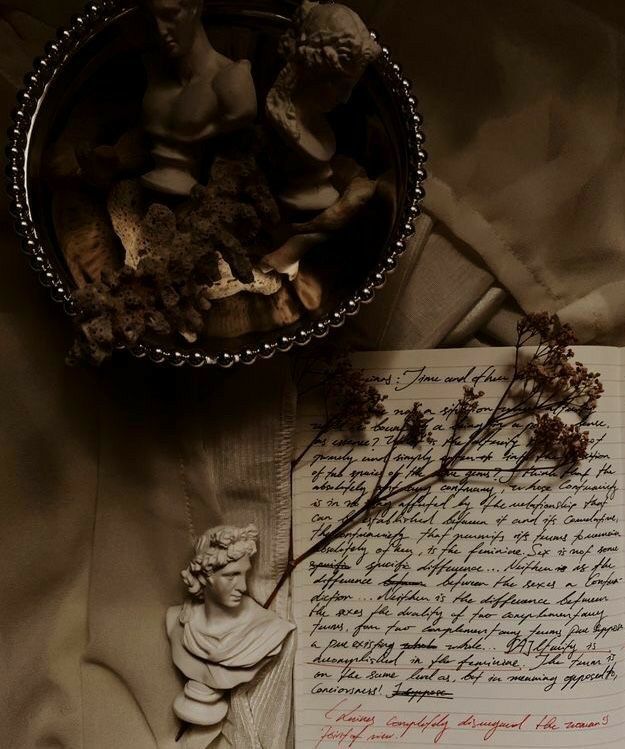 : Time and other
not a situation
a being
as essence? What is the alterity not
purely and simply
of the species of the same genus? I think that the
absolutely contrary contrary, whose contrariety
is in no way affected by the relationship that
can be established between it and its correlative,
the contrariety that permits its terms to remain
absolutely other, is the feminine. Sex is not some
specific difference... Neither is as the
difference between the sexes a contra-
diction... Neither is the difference between
the sexes the duality of two complementary
terms, for two complementary terms presuppose
a pre existing whole... [A]lterity is
accomplished in the feminine. The term is
on the same level as, but in meaning opposed to,
consciousness! I suppose
(Levinas completely disregard the woman's
point of view!